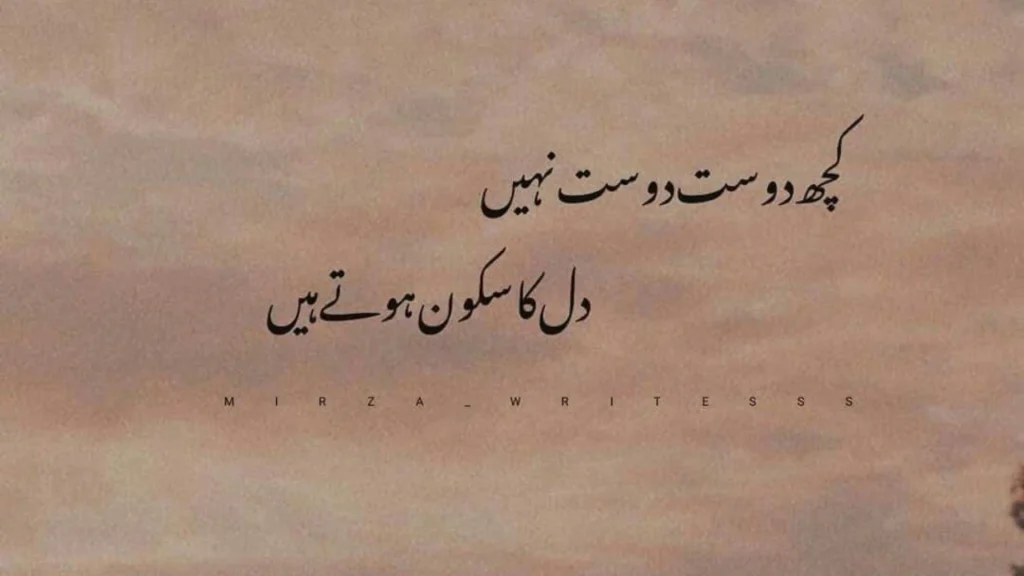 کچھ دوست دوست نہیں
دل کا سکون ہوتے ہیں
MIRZA_WRITESSS